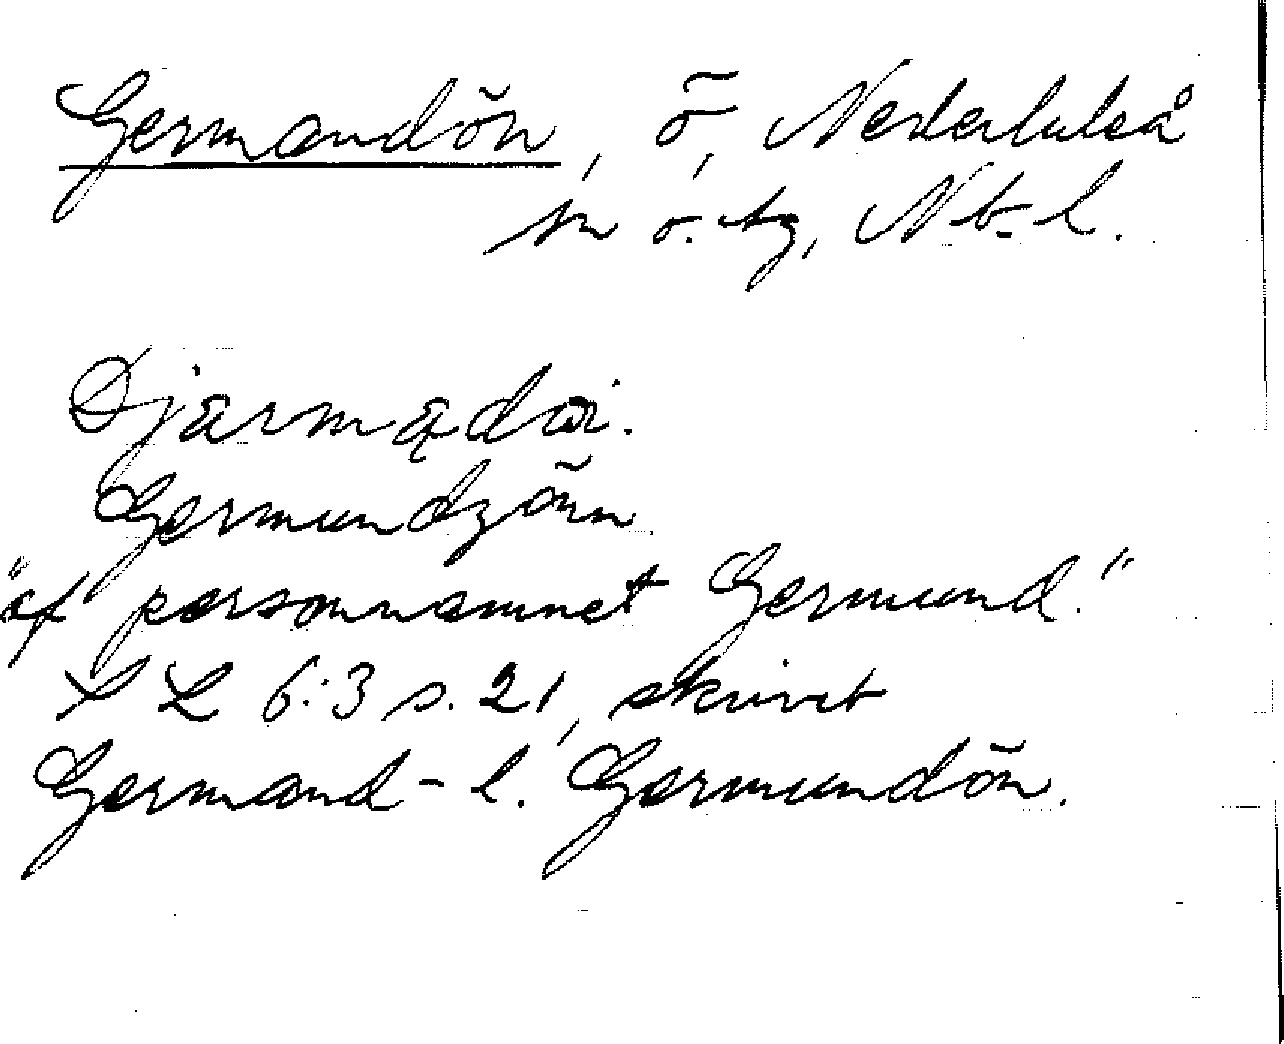 Germandön, ö, Nederluleå
sn o. tg, Nb. l.
Djärmądöi.
Germundzönn
"af personnamnet Germund."
S L 6:3 s. 21, skrivet
Germand- l. Germundön.